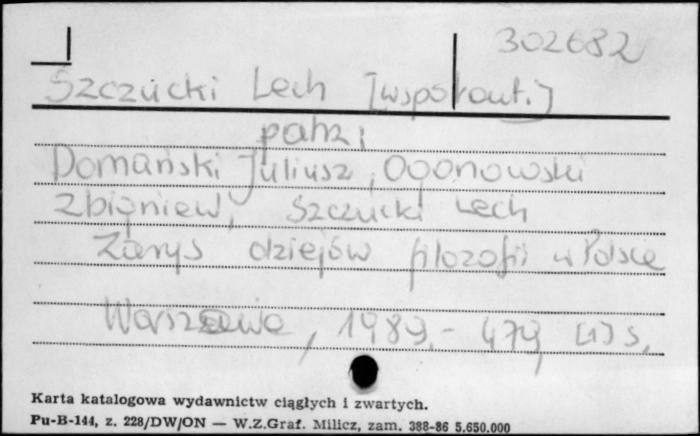 302682
Szczucki Lech [współaut.]
patrz:
Domański Juliusz, Ogonowski
Zbigniew, Szczucki Lech
Zarys dziejów filozofii w Polsce
Warszawa, 1989.- 479, [1] s.
Karta katalogowa wydawnictw ciągłych i zwartych.
Pu-B-144, z. 228/DW/ON — W.Z.Graf. Milicz, zam. 388-86 5.650.000